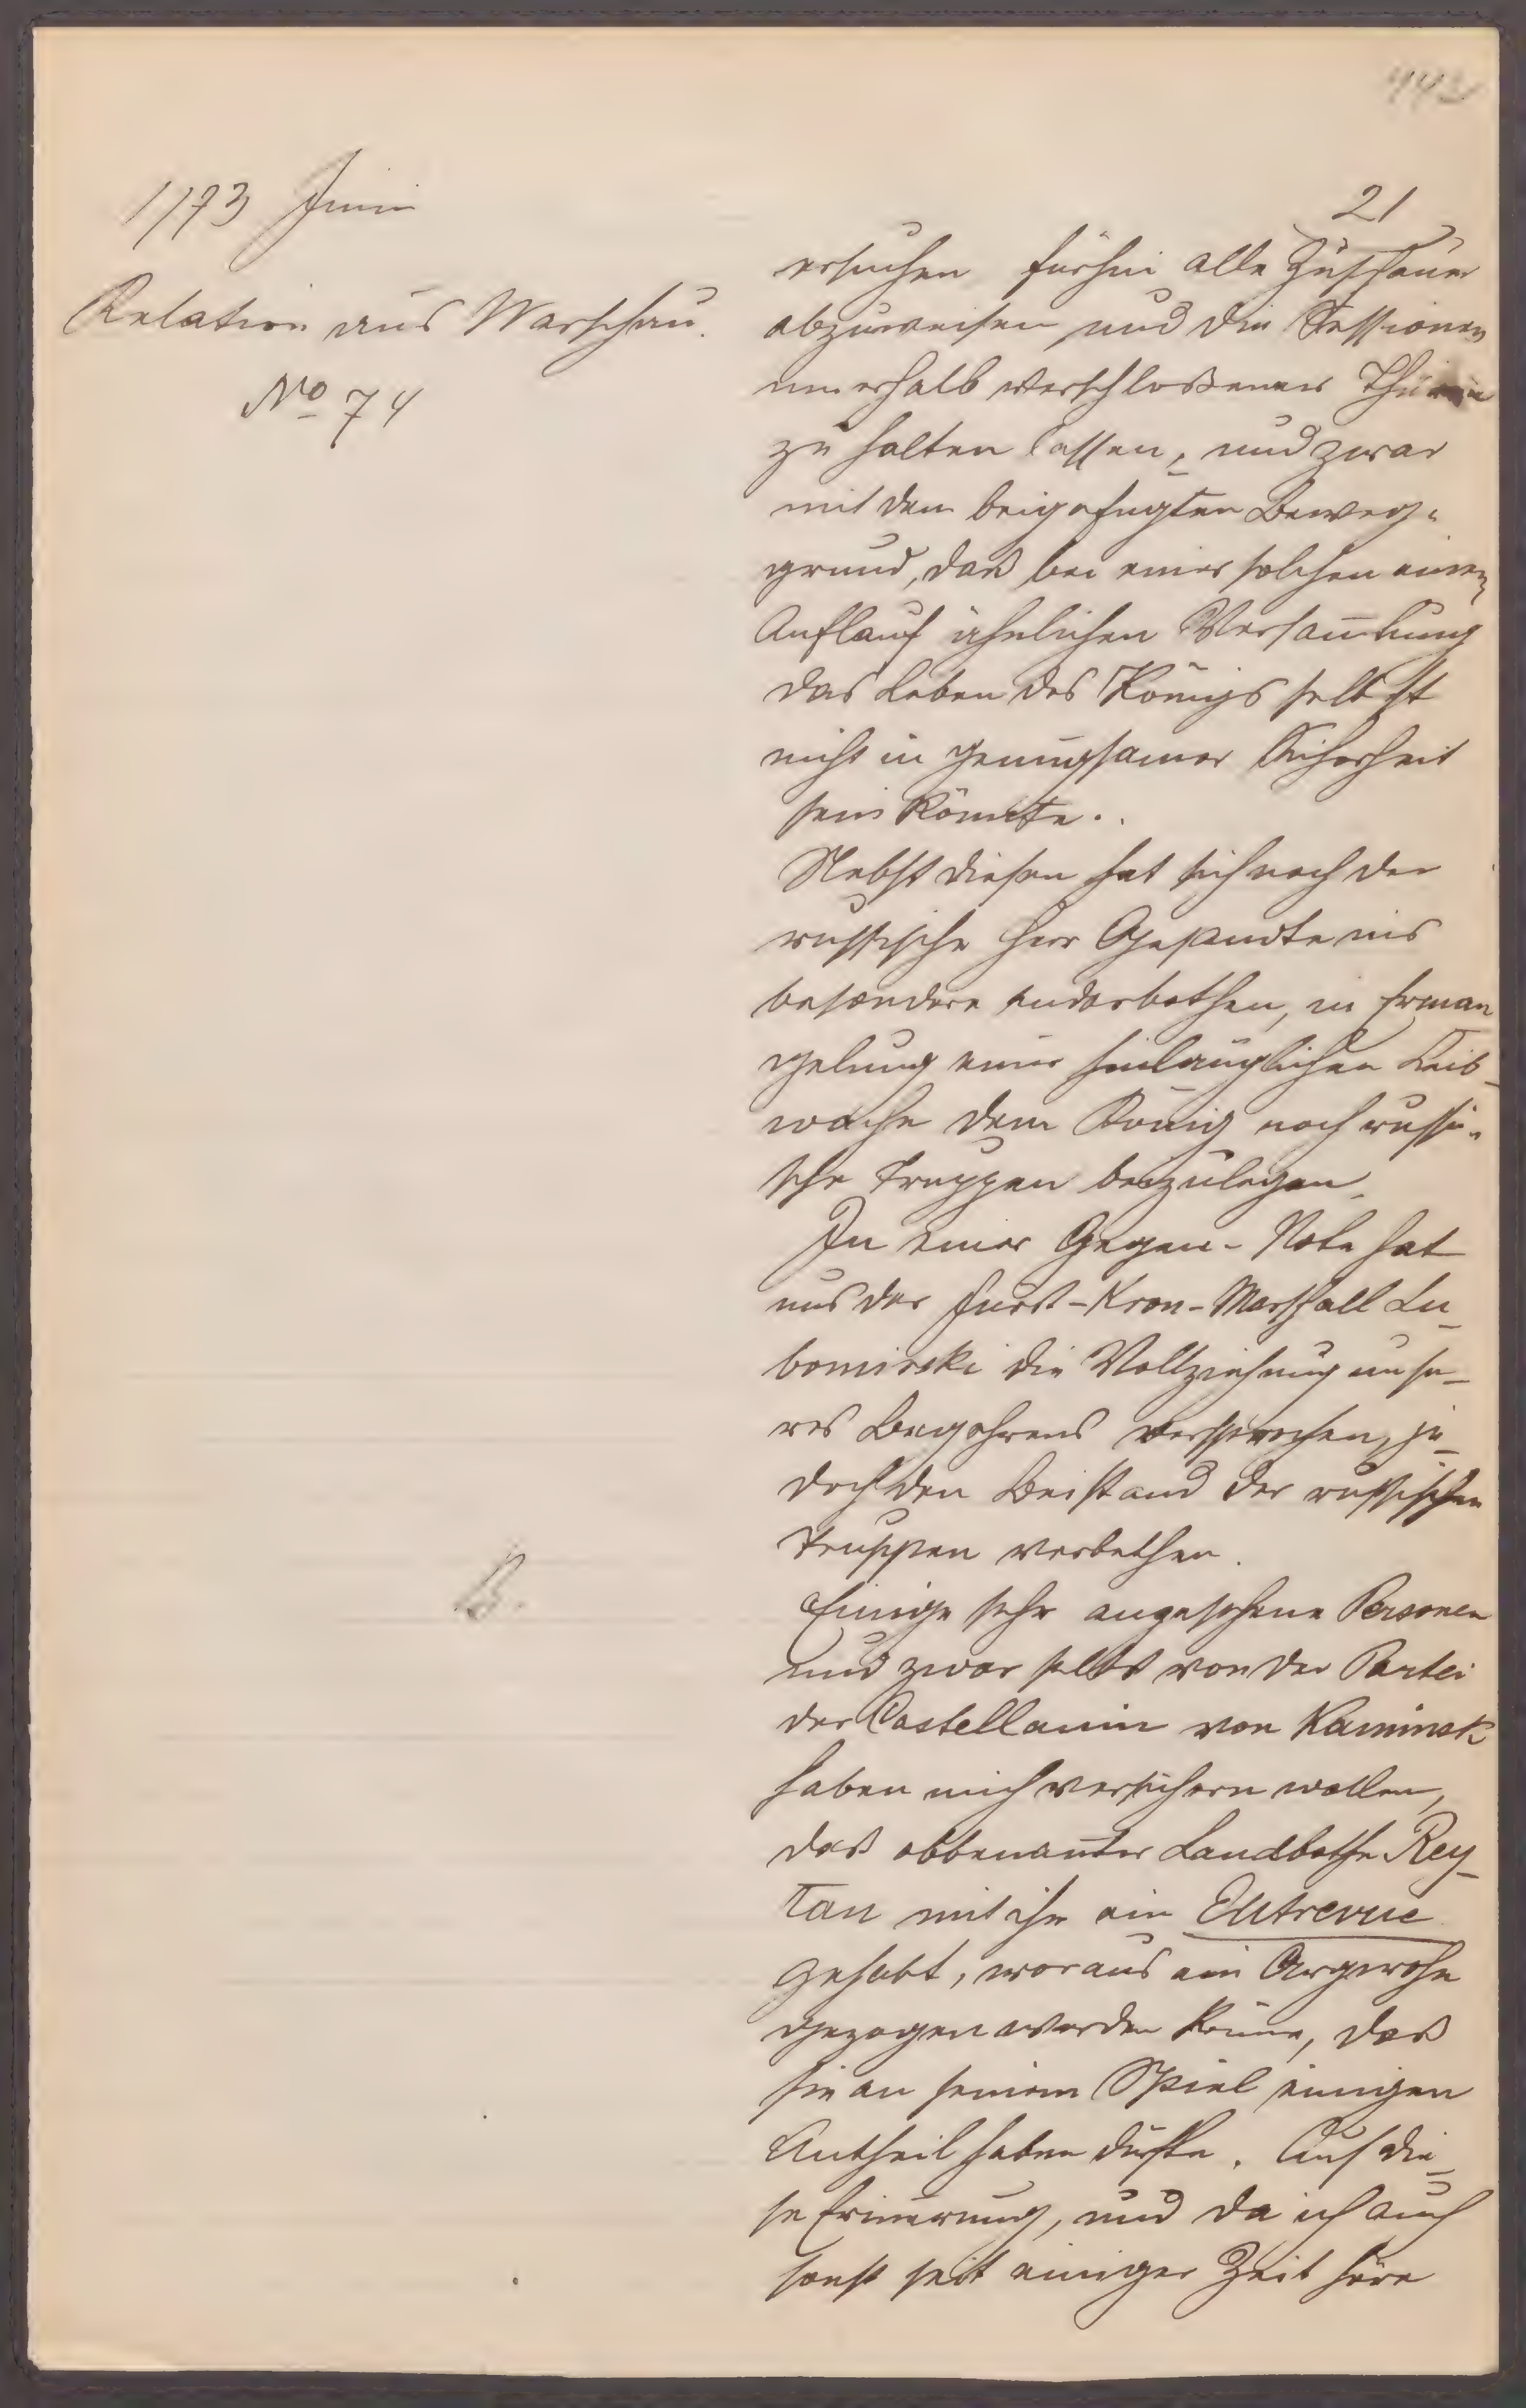 443
1773 Juni
Relation aus Warschau.
No 74
21
ersuchen fürhin alle Zuschauer
abzuweisen und die Sessionen
innerhalb verschloßener Thüren
zu halten lassen, und zwar
mit dem beigefügten Beweg-
grund, daß bei einer solchen einem
Auflauf ähnlichen Versam̅lung
das Leben des Königs selbst
nicht in genugsamer Sicherheit
sein könnte.
Nebst diesen hat sich noch der
russische Herr Gesandte ins
besondere anerbothen, in Erman
gelung einer hinlänglichen Leib-
wache dem König noch russi-
sche Truppen beizulegen.
In einer Gegen-Note hat
uns der Fürst-Kron-Marschall Lu-
bomirski die Vollziehung unse-
res Begehrens versprochen, je-
doch den Beistand der russischen
Truppen verbethen.
B.
Einige sehr angesehene Personen
und zwar selbst von der Partei
der Castellanin von Kaminsk
haben mich versichern wollen,
daß obbenan̅ter Landbothe Rey-
tan mit ihr ein Entrevue
gehabt, woraus ein Argwohn
gezogen werden kön̅e, daß
sie an seinem Spiel einigen
Antheil haben dürfte. Auf die-
se Erin̅erung, und da ich auch
sonst seit einiger Zeit höre